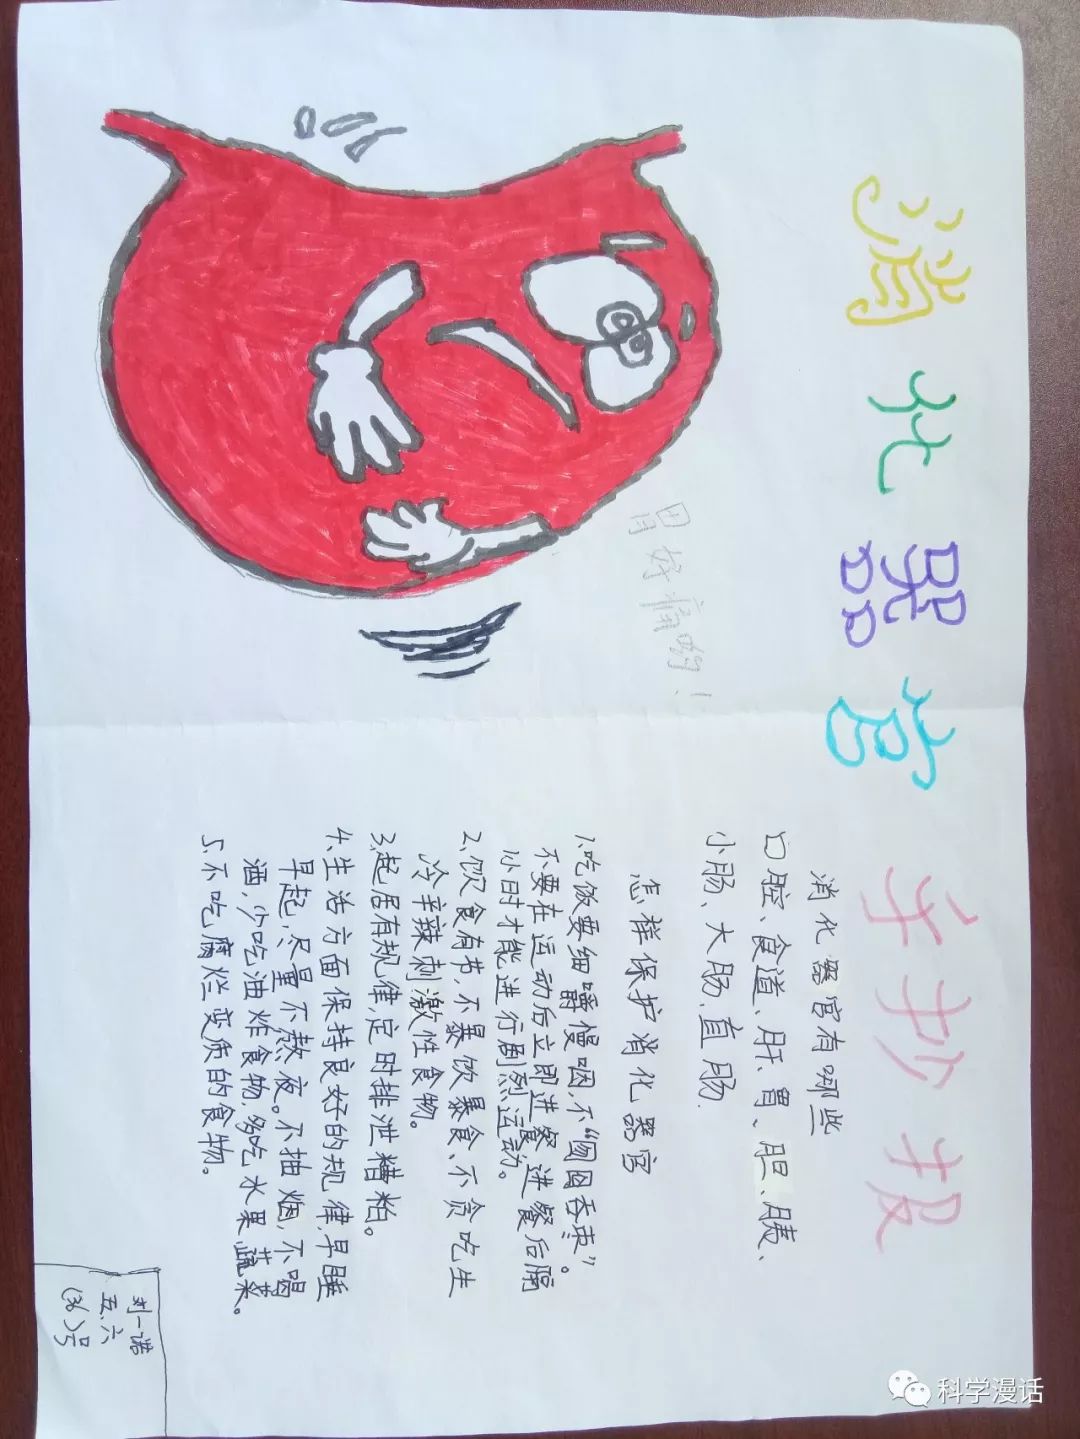 消化器官手抄报
胃好痛哟！
消化器官有哪些
口腔、食道、肝、胃、胆、胰、
小肠、大肠、直肠.
怎样保护消化器官
1.吃饭要细嚼慢咽,不“囫囵吞枣”。
不要在运动后立即进餐进餐后隔
1小时才能进行剧烈运动。
2、饮食有节,不暴饮暴食、不贪吃生
冷辛辣刺激性食物。
3.起居有规律,定时排泄糟粕。
4、生活方面保持良好的规律,早睡
早起,尽量不熬夜。不抽烟,不喝
酒,少吃油炸食物,多吃水果,蔬菜。
5、不吃腐烂变质的食物。
刘一诺
五、六
(36)号
科学漫话